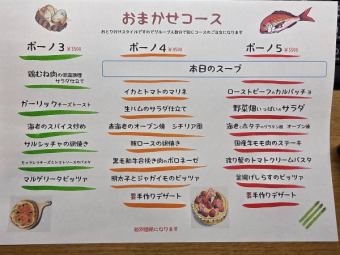 おまかせコース
おとり分けスタイルですのでグループ人数分で同じコースのご注文になります
ボーノ3 ¥3500
ボーノ4 ¥4500
ボーノ5 ¥5500
本日のスープ
鶏むね肉の低温調理
サラダ仕立て
ガーリックチーズトースト
海老のスパイス炒め
サルシッチャの卵焼き
モッツァレラチーズとトマトソースのパスタ
マルゲリータピッツァ
イカとトマトのマリネ
生ハムのサラダ仕立て
海老のオーブン焼き シチリア風
豚ロースの卵焼き
黒毛和牛合挽き肉のボロネーゼ
明太子とジャガイモのピッツァ
手作りデザート
ローストビーフのカルパッチョ
野菜畑いっぱいのサラダ
海老とホタテのグラタン風 オーブン焼
国産牛モモ肉のステーキ
渡り蟹のトマトクリームパスタ
釜揚げしらすのピッツァ
手作りデザート
税別価格になります